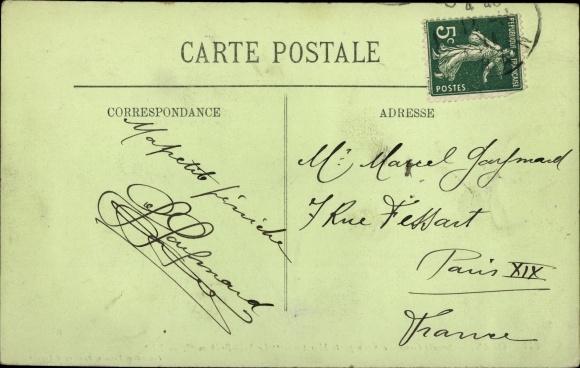 CARTE POSTALE
5c
RÉPUBLIQUE FRANÇAISE
POSTES
CORRESPONDANCE
ADRESSE
Ma petite péniche
Gaymard
Mr Marcel Gaymard
7 Rue Fessart
Paris XIX
France